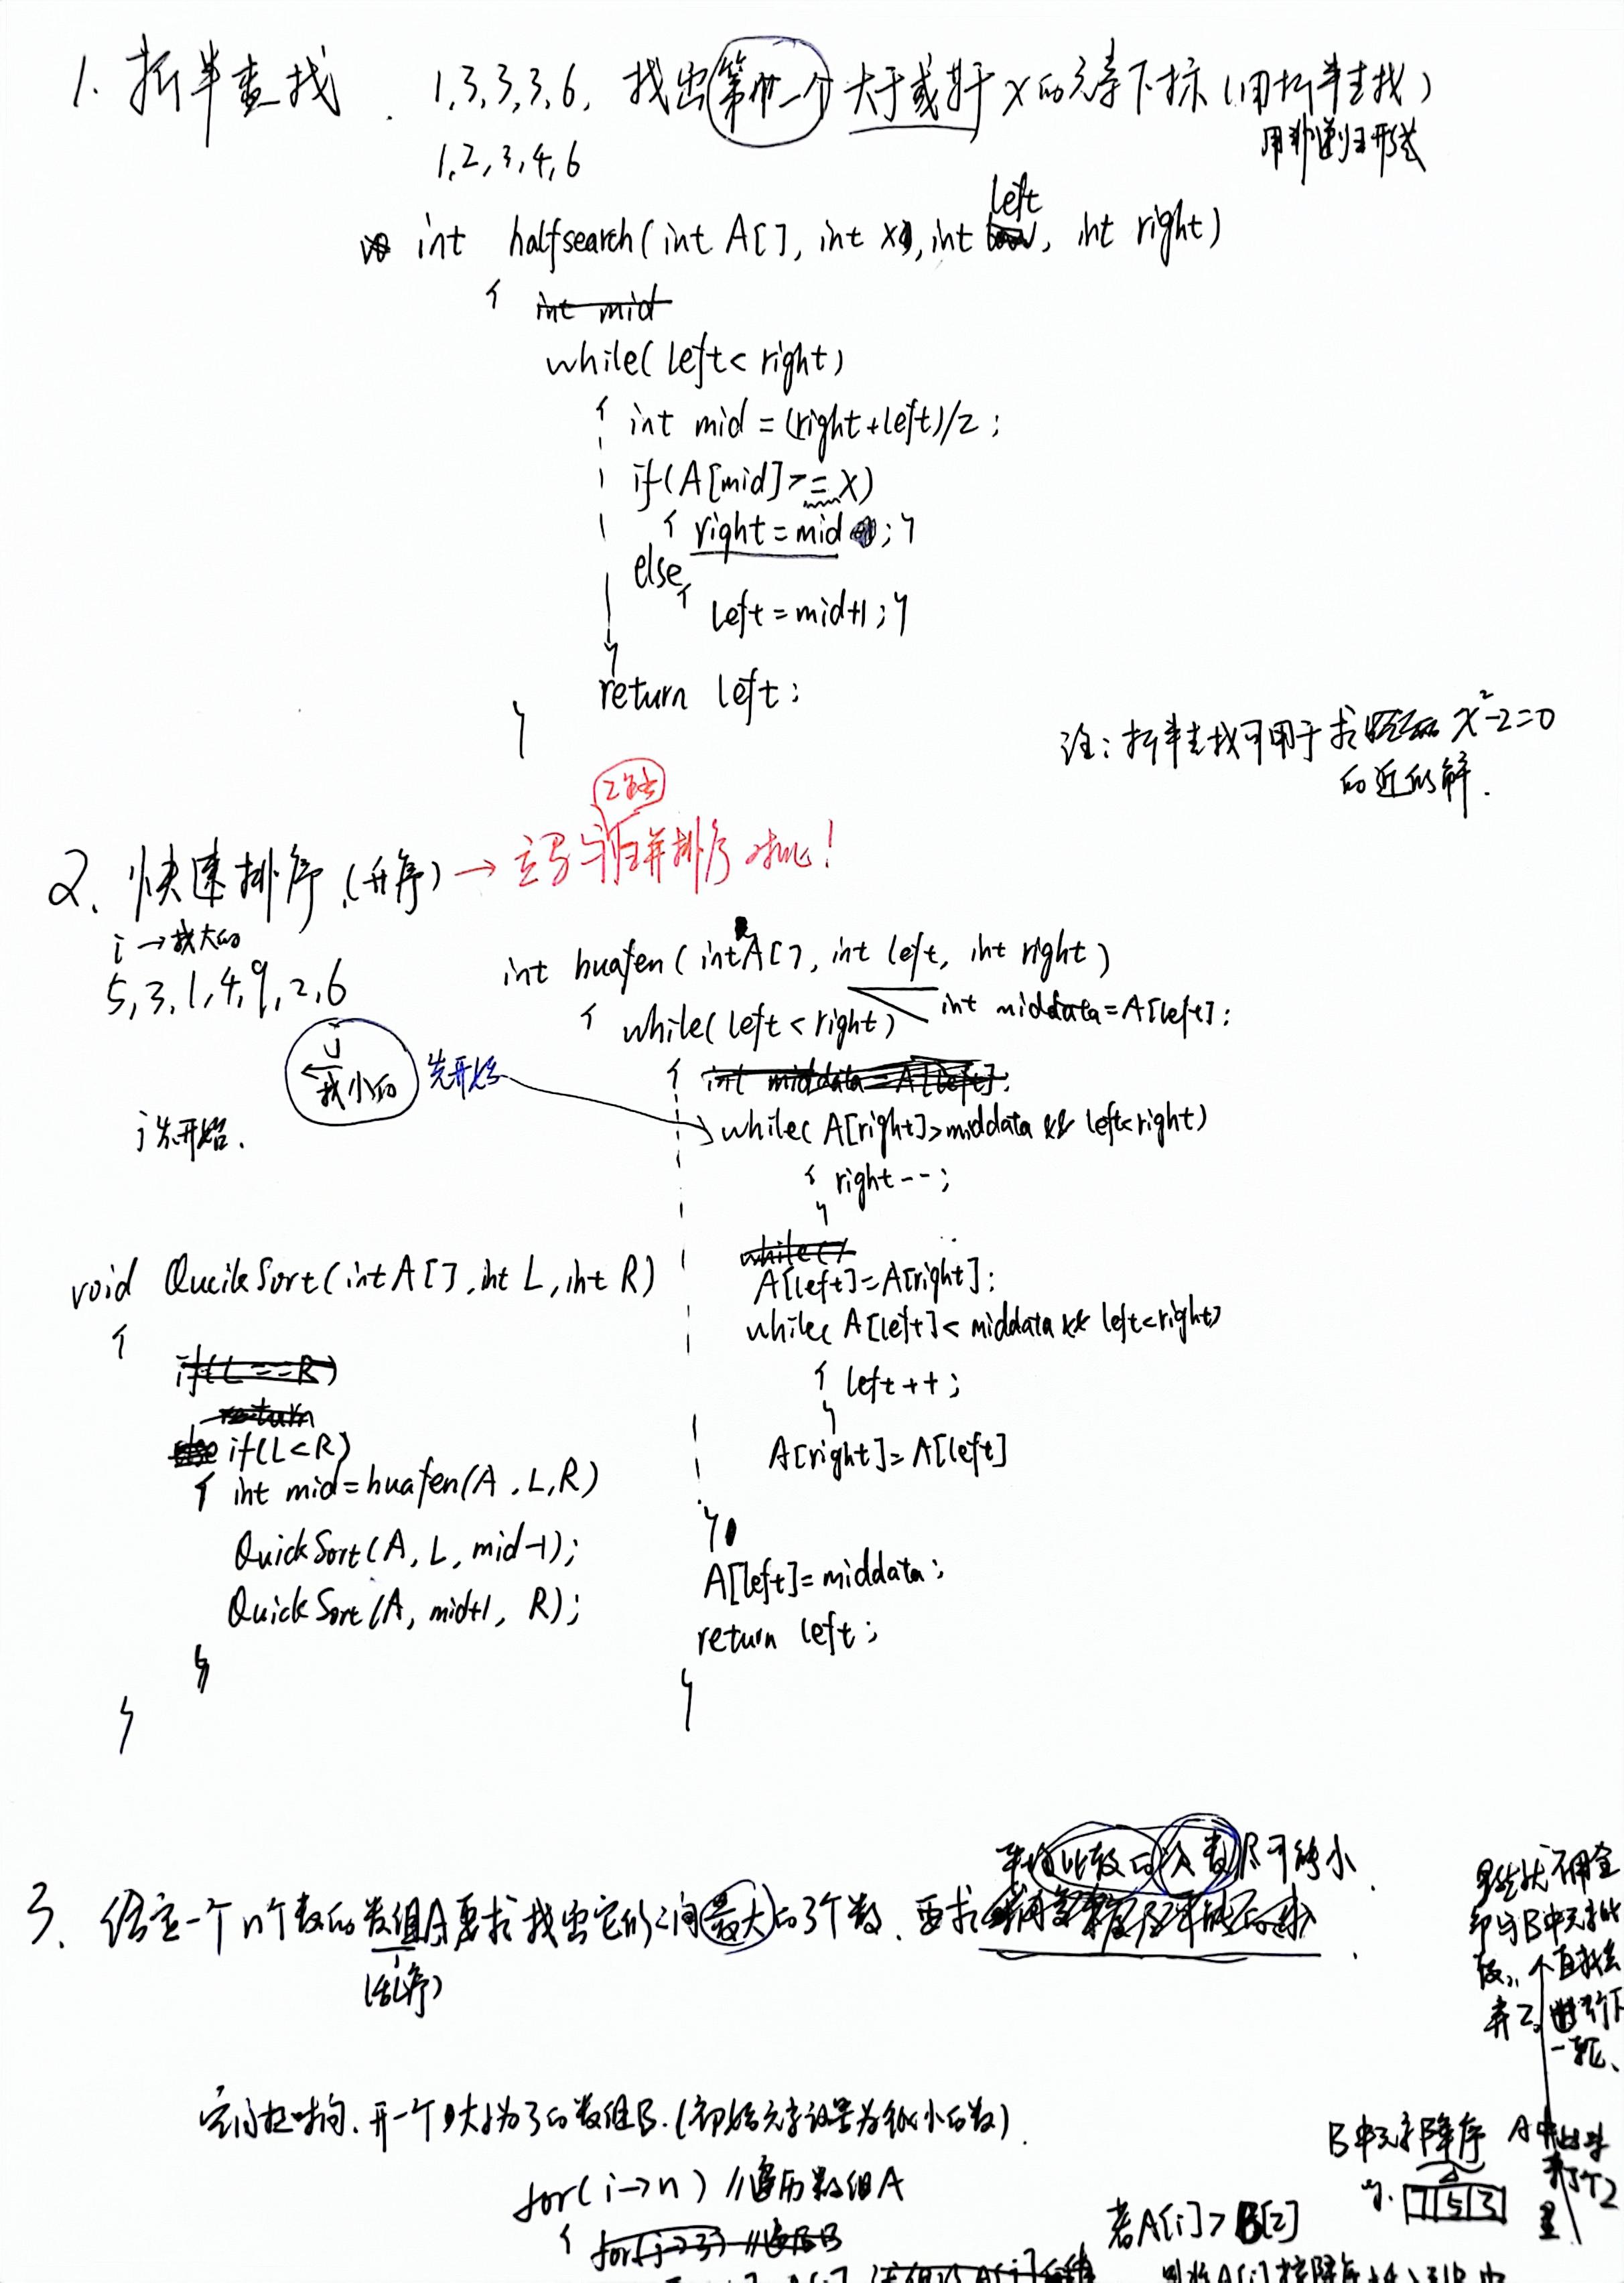 1. 折半查找. 1,3,3,3,6, 找出第一个大于或等于x的元素下标(用折半查找)
用非递归形式
1,2,3,4,6
left
int halfsearch(int A[], int x, int , int right)
{ int mid
while(left<right)
{ int mid=(right+left)/2;
if(A[mid]>=x)
{ right=mid ;}
else
{ left=mid+1;}
}
return left;
}
注:折半查找可用于求 x²-2=0
的近似解.
2路
2. 快速排序.(升序)→ 与归并排序对比!
i→找大的
5,3,1,4,9,2,6
j
←找小的 先开始
j先开始.
int huafen(int A[], int left, int right)
int middata=A[left];
{ while(left<right)
{ int middata=A[left];
while( A[right]>middata && left<right)
{ right--;
}
while()
A[left]=A[right];
while( A[left]<middata && left<right)
{ left++;
}
A[right]=A[left]
}
A[left]=middata;
return left;
}
void QucikSort(int A[], int L, int R)
{
if(L==R)
return
else if(L<R)
{ int mid=huafen(A,L,R)
QuickSort(A, L, mid-1);
QuickSort(A, mid+1, R);
}
}
平均比较的次数尽可能小.
3. 给定一个n个数的数组A,要求找出它们之间最大的3个数. 要求
(乱序)
空间换时间. 开一个大小为3的数组B.(初始元素设置为极小的数).
for(i→n) //遍历数组A
{ for(j→3) //遍历B
若A[i]>B[2]
B中元素降序
7 5 3